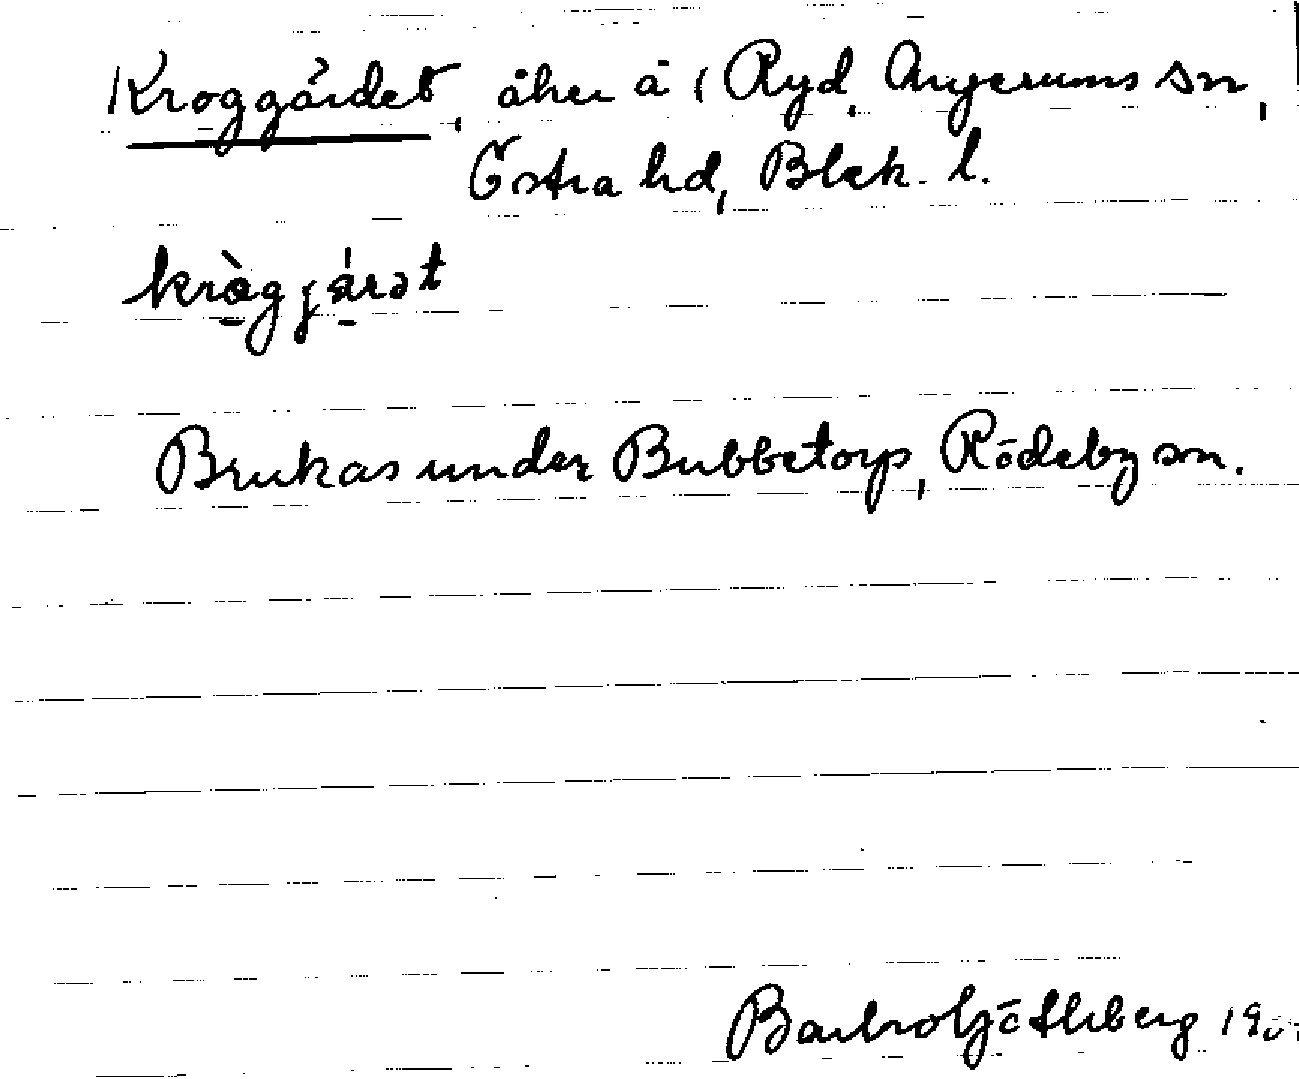 Kroggärdet, åker å 1 Ryd, Augerums sn,
Östra hd, Blek. l.
kròggjárət
Brukas under Bubbetorp, Rödeby sn.
Barbro Götheberg